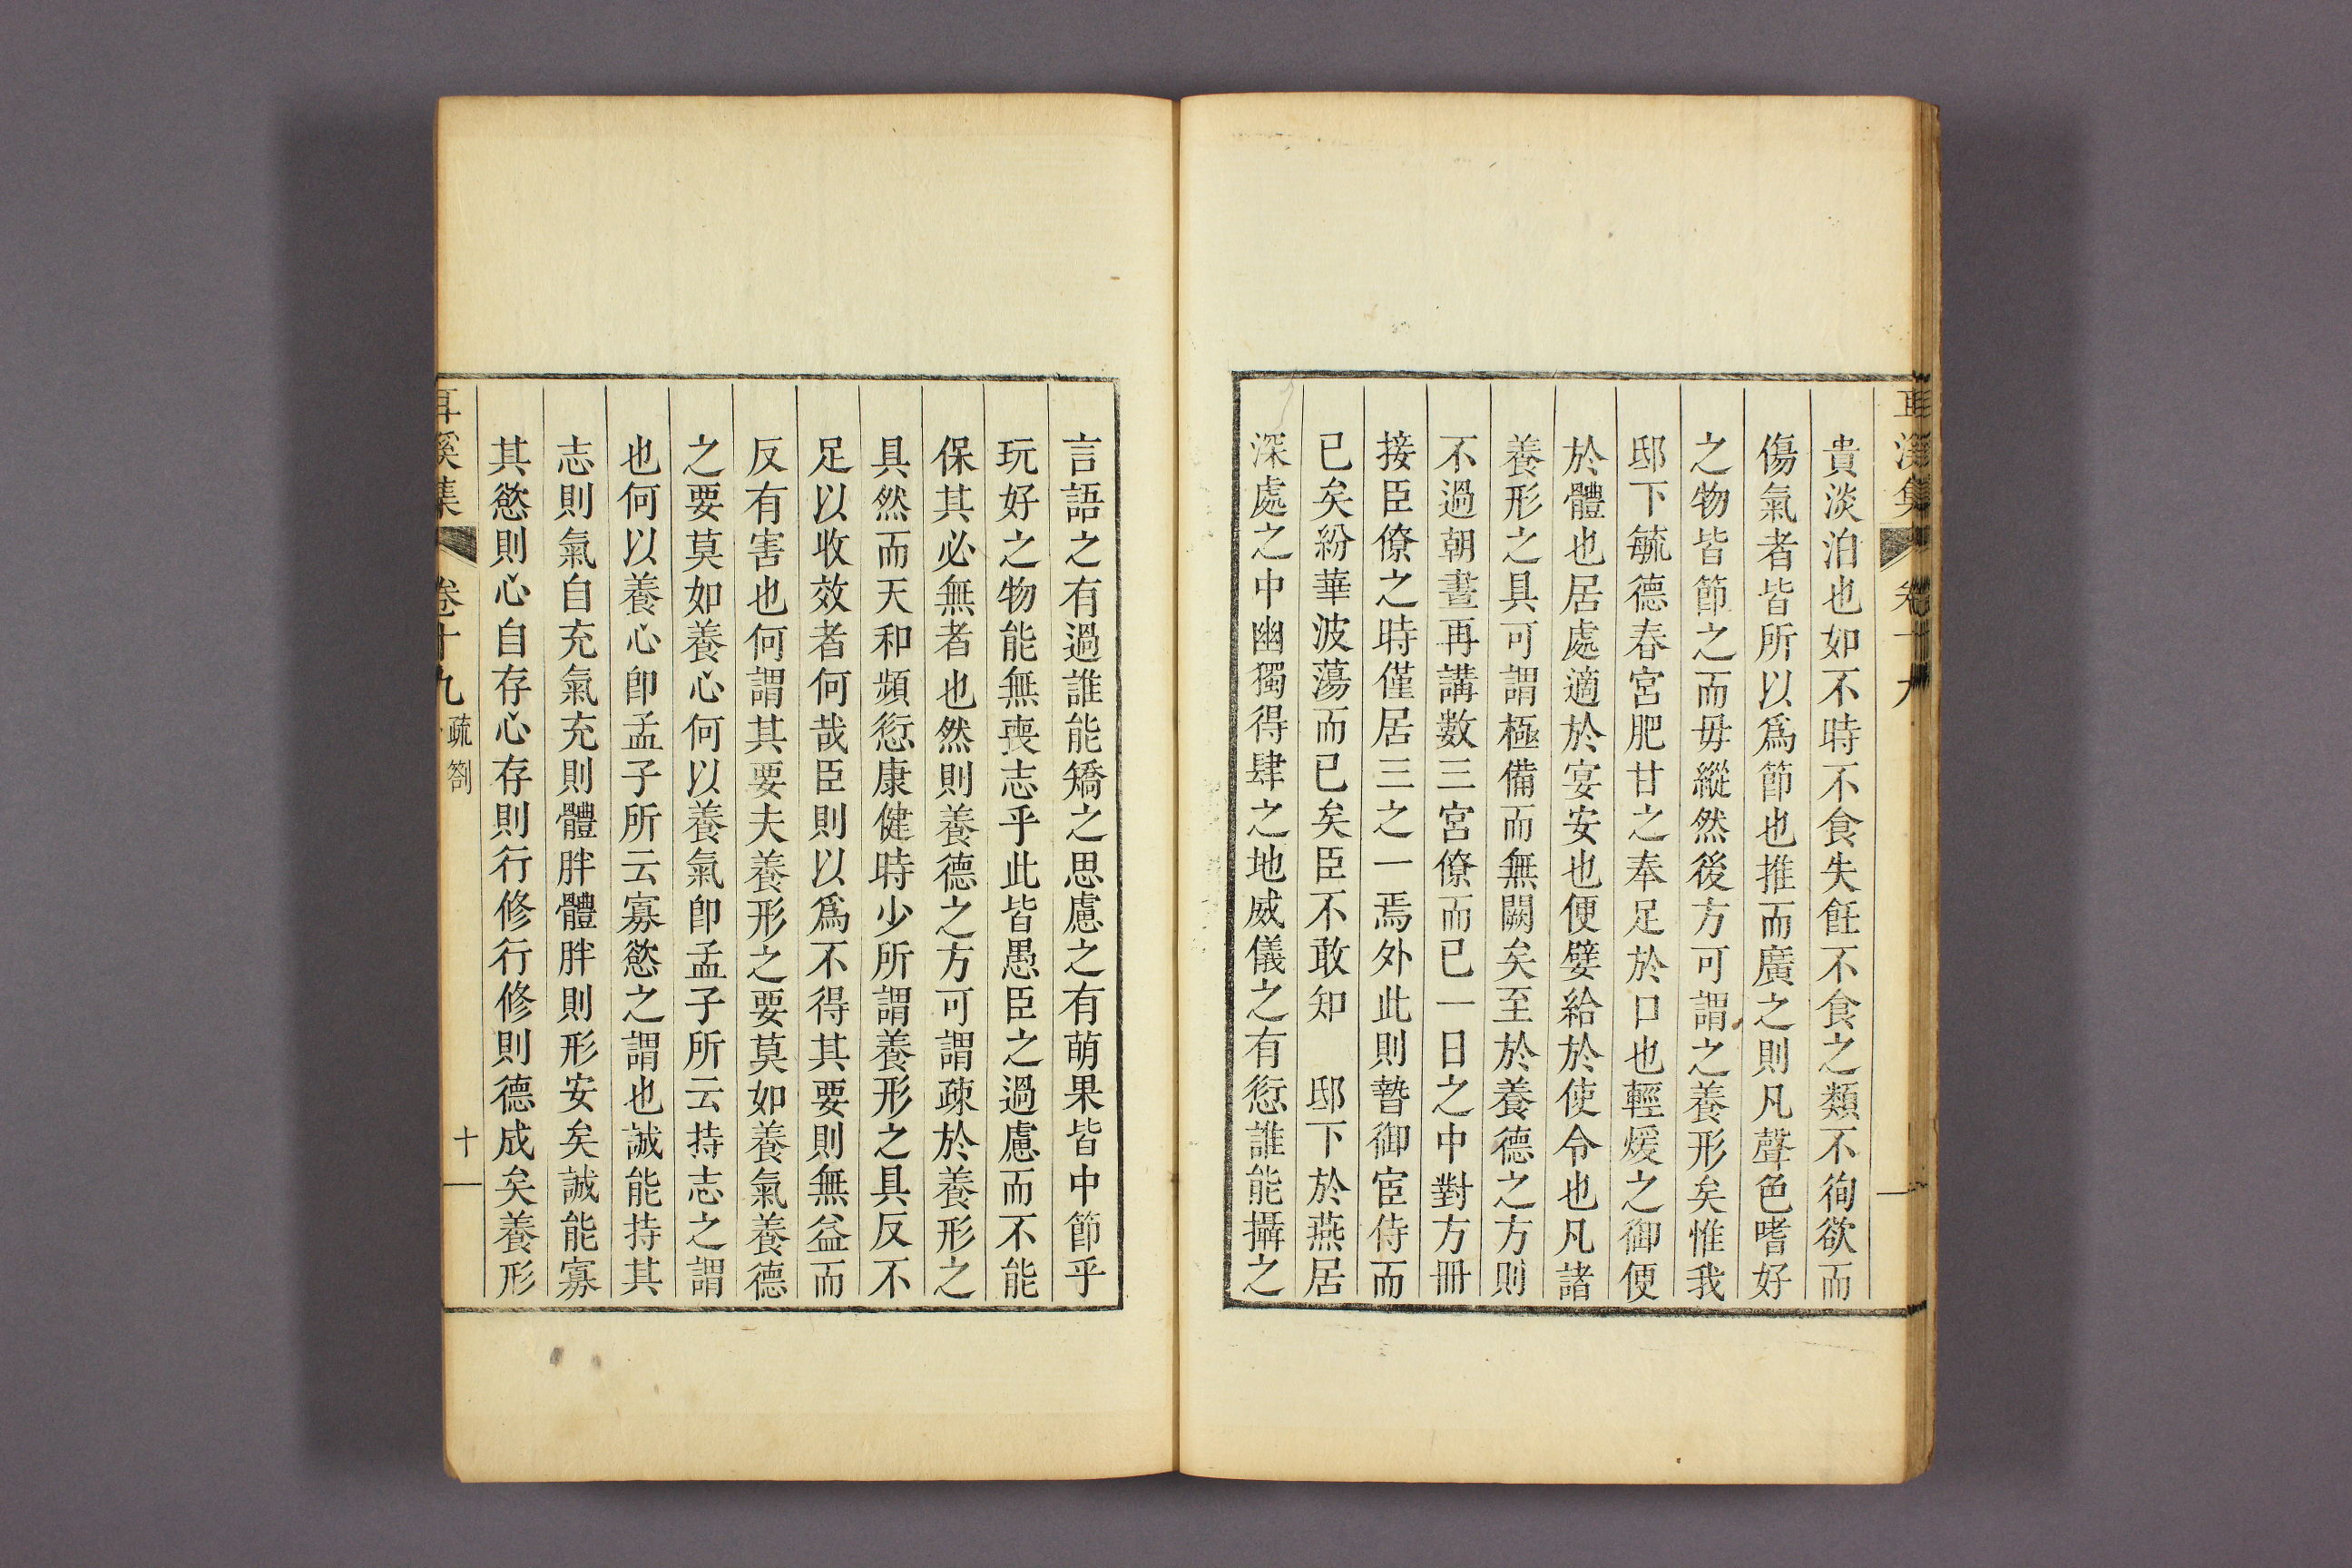 貴淡泊也如不時不食失飪不食之類不徇欲而
傷氣者皆所以爲節也推而廣之則凡聲色嗜好
之物皆節之而毋縱然後方可謂之養形矣惟我
邸下毓德春宮肥甘之奉足於口也輕煖之御便
於體也居處適於宴安也便嬖給於使令也凡諸
養形之具可謂極備而無闕矣至於養德之方則
不過朝晝再講數三宮僚而已一日之中對方冊
接臣僚之時僅居三之一焉外此則暬御宦侍而
已矣紛華波蕩而已矣臣不敢知 邸下於燕居
深處之中幽獨得肆之地威儀之有愆誰能攝之
言語之有過誰能矯之思慮之有萌果皆中節乎
玩好之物能無喪志乎此皆愚臣之過慮而不能
保其必無者也然則養德之方可謂疎於養形之
具然而天和頻愆康健時少所謂養形之具反不
足以收效者何哉臣則以爲不得其要則無益而
反有害也何謂其要夫養形之要莫如養氣養德
之要莫如養心何以養氣卽孟子所云持志之謂
也何以養心卽孟子所云寡慾之謂也誠能持其
志則氣自充氣充則體胖體胖則形安矣誠能寡
其慾則心自存心存則行修行修則德成矣養形
耳溪集 卷十九 疏劄 十